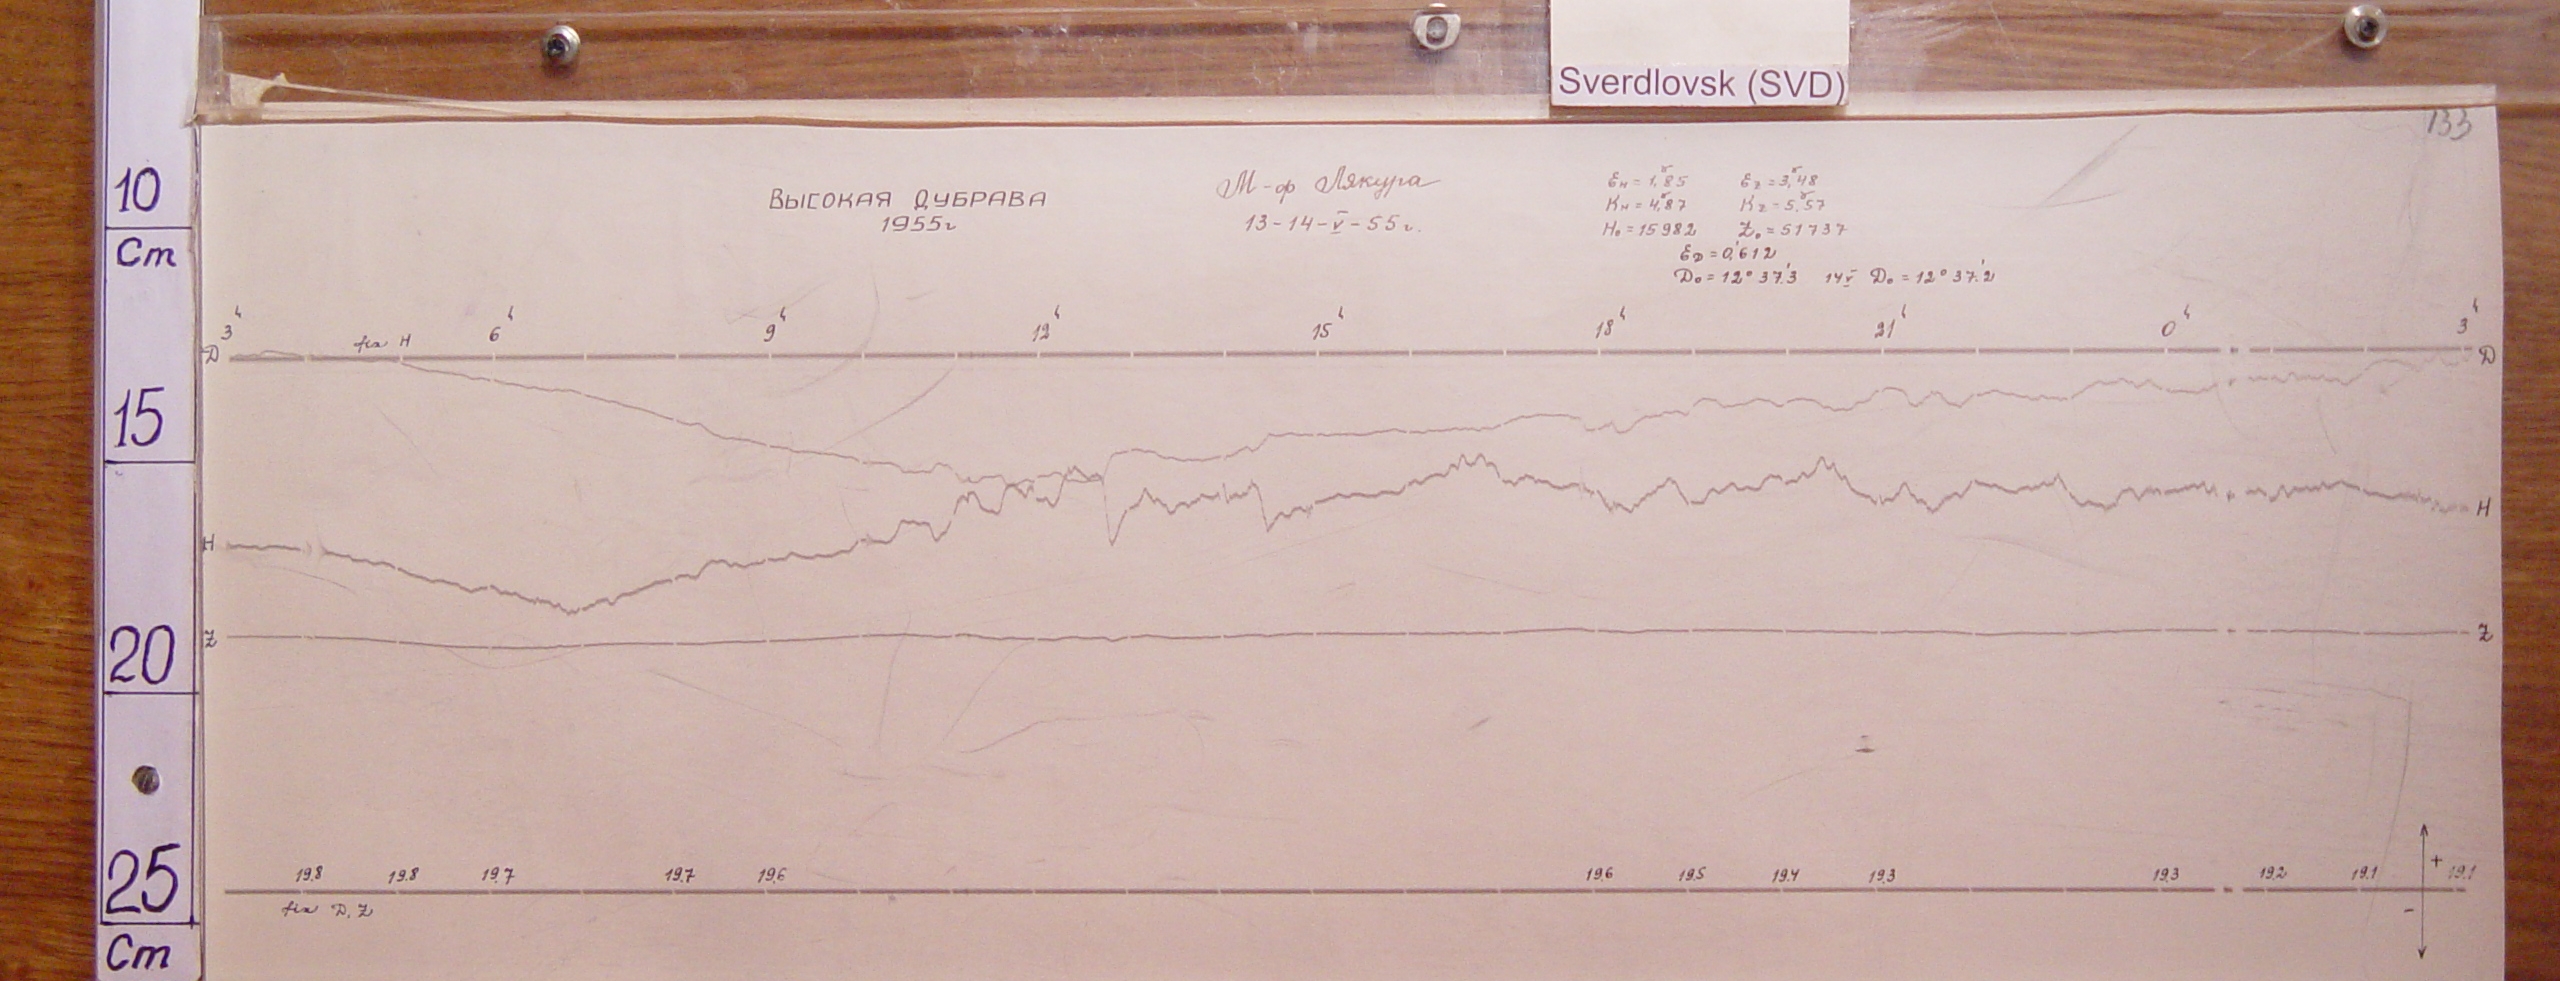 Sverdlovsk (SVD)
133
10
Cm
15
20
25
Cm
ВЫСОКАЯ ДУБРАВА
1955г
М-ф Лякура
13-14-V-55г.
εH = 1,γ85 εZ = 3,γ48
KH = 4,γ87 KZ = 5,γ57
H₀ = 15982 Z₀ = 51737
εD = 0,'612
D₀ = 12° 37,'3 14V D₀ = 12° 37,'2
3ч 6ч 9ч 12ч 15ч 18ч 21ч 0ч 3ч
fix H
D D
H H
Z Z
19.8 19.8 19.7 19.7 19.6 19.6 19.5 19.4 19.3 19.3 19.2 19.1 19.1
fix D, Z
+
-